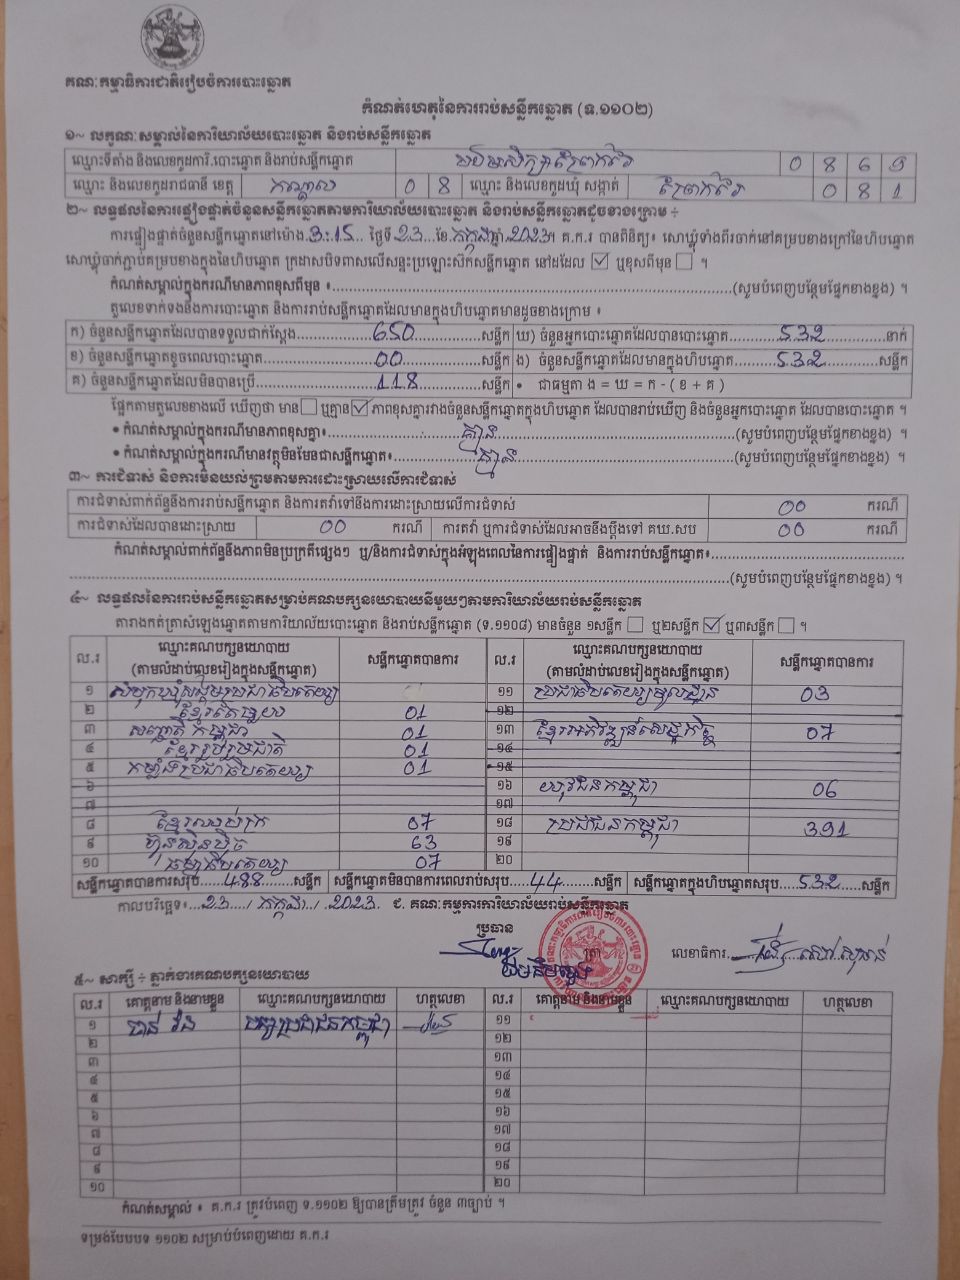 គណៈកម្មាធិការជាតិរៀបចំការបោះឆ្នោត
កំណត់ហេតុនៃការរាប់សន្លឹកឆ្នោត (ទ.១១០២)
១~ លក្ខណៈសម្គាល់នៃការិយាល័យបោះឆ្នោត និងរាប់សន្លឹកឆ្នោត
ឈ្មោះទីតាំង និងលេខកូដការិ.បោះឆ្នោត និងរាប់សន្លឹកឆ្នោត 0 8 6 9
ឈ្មោះ និងលេខកូដរាជធានី ខេត្ត កណ្តាល 0 8 ឈ្មោះ និងលេខកូដឃុំ សង្កាត់ 0 8 1
២~ លទ្ធផលនៃការផ្ទៀងផ្ទាត់ចំនួនសន្លឹកឆ្នោតតាមការិយាល័យបោះឆ្នោត និងរាប់សន្លឹកឆ្នោតដូចខាងក្រោម ÷
ការផ្ទៀងផ្ទាត់ចំនួនសន្លឹកឆ្នោតនៅម៉ោង 3:15 ថ្ងៃទី 23 ខែ កក្កដា ឆ្នាំ 2023។ គ.ក.រ បានពិនិត្យ៖ សោឃ្លុំទាំងពីរចាក់នៅគម្របខាងក្រៅនៃហិបឆ្នោត
សោឃ្លុំចាក់ភ្ជាប់គម្របខាងក្នុងនៃហិបឆ្នោត ក្រដាសបិទពាសលើសន្ទះប្រឡោះស៊កសន្លឹកឆ្នោត នៅដដែល ☑ ឬខុសពីមុន ☐ ។
កំណត់សម្គាល់ក្នុងករណីមានភាពខុសពីមុន ៖ (សូមបំពេញបន្ថែមផ្នែកខាងខ្នង) ។
តួលេខទាក់ទងនឹងការបោះឆ្នោត និងការរាប់សន្លឹកឆ្នោតដែលមានក្នុងហិបឆ្នោតមានដូចខាងក្រោម ៖
ក) ចំនួនសន្លឹកឆ្នោតដែលបានទទួលជាក់ស្តែង 650 សន្លឹក ឃ) ចំនួនអ្នកបោះឆ្នោតដែលបានបោះឆ្នោត 532 នាក់
ខ) ចំនួនសន្លឹកឆ្នោតខូចពេលបោះឆ្នោត 00 សន្លឹក ង) ចំនួនសន្លឹកឆ្នោតដែលមានក្នុងហិបឆ្នោត 532 សន្លឹក
គ) ចំនួនសន្លឹកឆ្នោតដែលមិនបានប្រើ 118 សន្លឹក • ជាធម្មតា ង = ឃ = ក - ( ខ + គ )
ផ្អែកតាមតួលេខខាងលើ ឃើញថា មាន ☐ ឬគ្មាន ☑ ភាពខុសគ្នារវាងចំនួនសន្លឹកឆ្នោតក្នុងហិបឆ្នោត ដែលបានរាប់ឃើញ និងចំនួនអ្នកបោះឆ្នោត ដែលបានបោះឆ្នោត ។
• កំណត់សម្គាល់ក្នុងករណីមានភាពខុសគ្នា៖ គ្មាន (សូមបំពេញបន្ថែមផ្នែកខាងខ្នង) ។
• កំណត់សម្គាល់ក្នុងករណីមានវត្ថុមិនមែនជាសន្លឹកឆ្នោត៖ គ្មាន (សូមបំពេញបន្ថែមផ្នែកខាងខ្នង) ។
៣~ ការជំទាស់ និងការមិនយល់ព្រមតាមការដោះស្រាយលើការជំទាស់
ការជំទាស់ពាក់ព័ន្ធនឹងការរាប់សន្លឹកឆ្នោត និងការតវ៉ាទៅនឹងការដោះស្រាយលើការជំទាស់ 00 ករណី
ការជំទាស់ដែលបានដោះស្រាយ 00 ករណី ការតវ៉ា ឬការជំទាស់ដែលអាចនឹងប្តឹងទៅ គឃ.សប 00 ករណី
កំណត់សម្គាល់ពាក់ព័ន្ធនឹងភាពមិនប្រក្រតីផ្សេងៗ ឬ/និងការជំទាស់ក្នុងអំឡុងពេលនៃការផ្ទៀងផ្ទាត់ និងការរាប់សន្លឹកឆ្នោត៖
(សូមបំពេញបន្ថែមផ្នែកខាងខ្នង) ។
៤~ លទ្ធផលនៃការរាប់សន្លឹកឆ្នោតសម្រាប់គណបក្សនយោបាយនីមួយៗតាមការិយាល័យរាប់សន្លឹកឆ្នោត
តារាងកត់ត្រាសំឡេងឆ្នោតតាមការិយាល័យបោះឆ្នោត និងរាប់សន្លឹកឆ្នោត (ទ.១១០៨) មានចំនួន ១សន្លឹក ☐ ឬ២សន្លឹក ☑ ឬ៣សន្លឹក ☐ ។
ល.រ ឈ្មោះគណបក្សនយោបាយ (តាមលំដាប់លេខរៀងក្នុងសន្លឹកឆ្នោត) សន្លឹកឆ្នោតបានការ ល.រ ឈ្មោះគណបក្សនយោបាយ (តាមលំដាប់លេខរៀងក្នុងសន្លឹកឆ្នោត) សន្លឹកឆ្នោតបានការ
១ សំបុកឃ្មុំសង្គមប្រជាធិបតេយ្យ ១១ ប្រជាធិបតេយ្យមូលដ្ឋាន 03
២ ខ្មែរតែមួយ 01 ១២
៣ សញ្ជាតិកម្ពុជា 01 ១៣ ខ្មែរអភិវឌ្ឍន៍សេដ្ឋកិច្ច 07
៤ ខ្មែររួបរួមជាតិ 01 ១៤
៥ កម្លាំងប្រជាធិបតេយ្យ 01 ១៥
៦ ១៦ យុវជនកម្ពុជា 06
៧ ១៧
៨ ខ្មែរឈប់ក្រ 07 ១៨ ប្រជាជនកម្ពុជា 391
៩ ហ្វ៊ុនស៊ិនប៉ិច 63 ១៩
១០ ធម្មាធិបតេយ្យ 07 ២០
សន្លឹកឆ្នោតបានការសរុប 488 សន្លឹក សន្លឹកឆ្នោតមិនបានការពេលរាប់សរុប 44 សន្លឹក សន្លឹកឆ្នោតក្នុងហិបឆ្នោតសរុប 532 សន្លឹក
កាលបរិច្ឆេទ៖ 23 / កក្កដា / 2023 ជ. គណៈកម្មការការិយាល័យរាប់សន្លឹកឆ្នោត
ប្រធាន
ត្រា លេខាធិការ
៥~ សាក្សី ÷ ភ្នាក់ងារគណបក្សនយោបាយ
ល.រ គោត្តនាម និងនាមខ្លួន ឈ្មោះគណបក្សនយោបាយ ហត្ថលេខា ល.រ គោត្តនាម និងនាមខ្លួន ឈ្មោះគណបក្សនយោបាយ ហត្ថលេខា
១ បក្សប្រជាជនកម្ពុជា ១១
២ ១២
៣ ១៣
៤ ១៤
៥ ១៥
៦ ១៦
៧ ១៧
៨ ១៨
៩ ១៩
១០ ២០
កំណត់សម្គាល់ ៖ គ.ក.រ ត្រូវបំពេញ ទ.១១០២ ឱ្យបានត្រឹមត្រូវ ចំនួន ៣ច្បាប់ ។
ទម្រង់បែបបទ ១១០២ សម្រាប់បំពេញដោយ គ.ក.រ